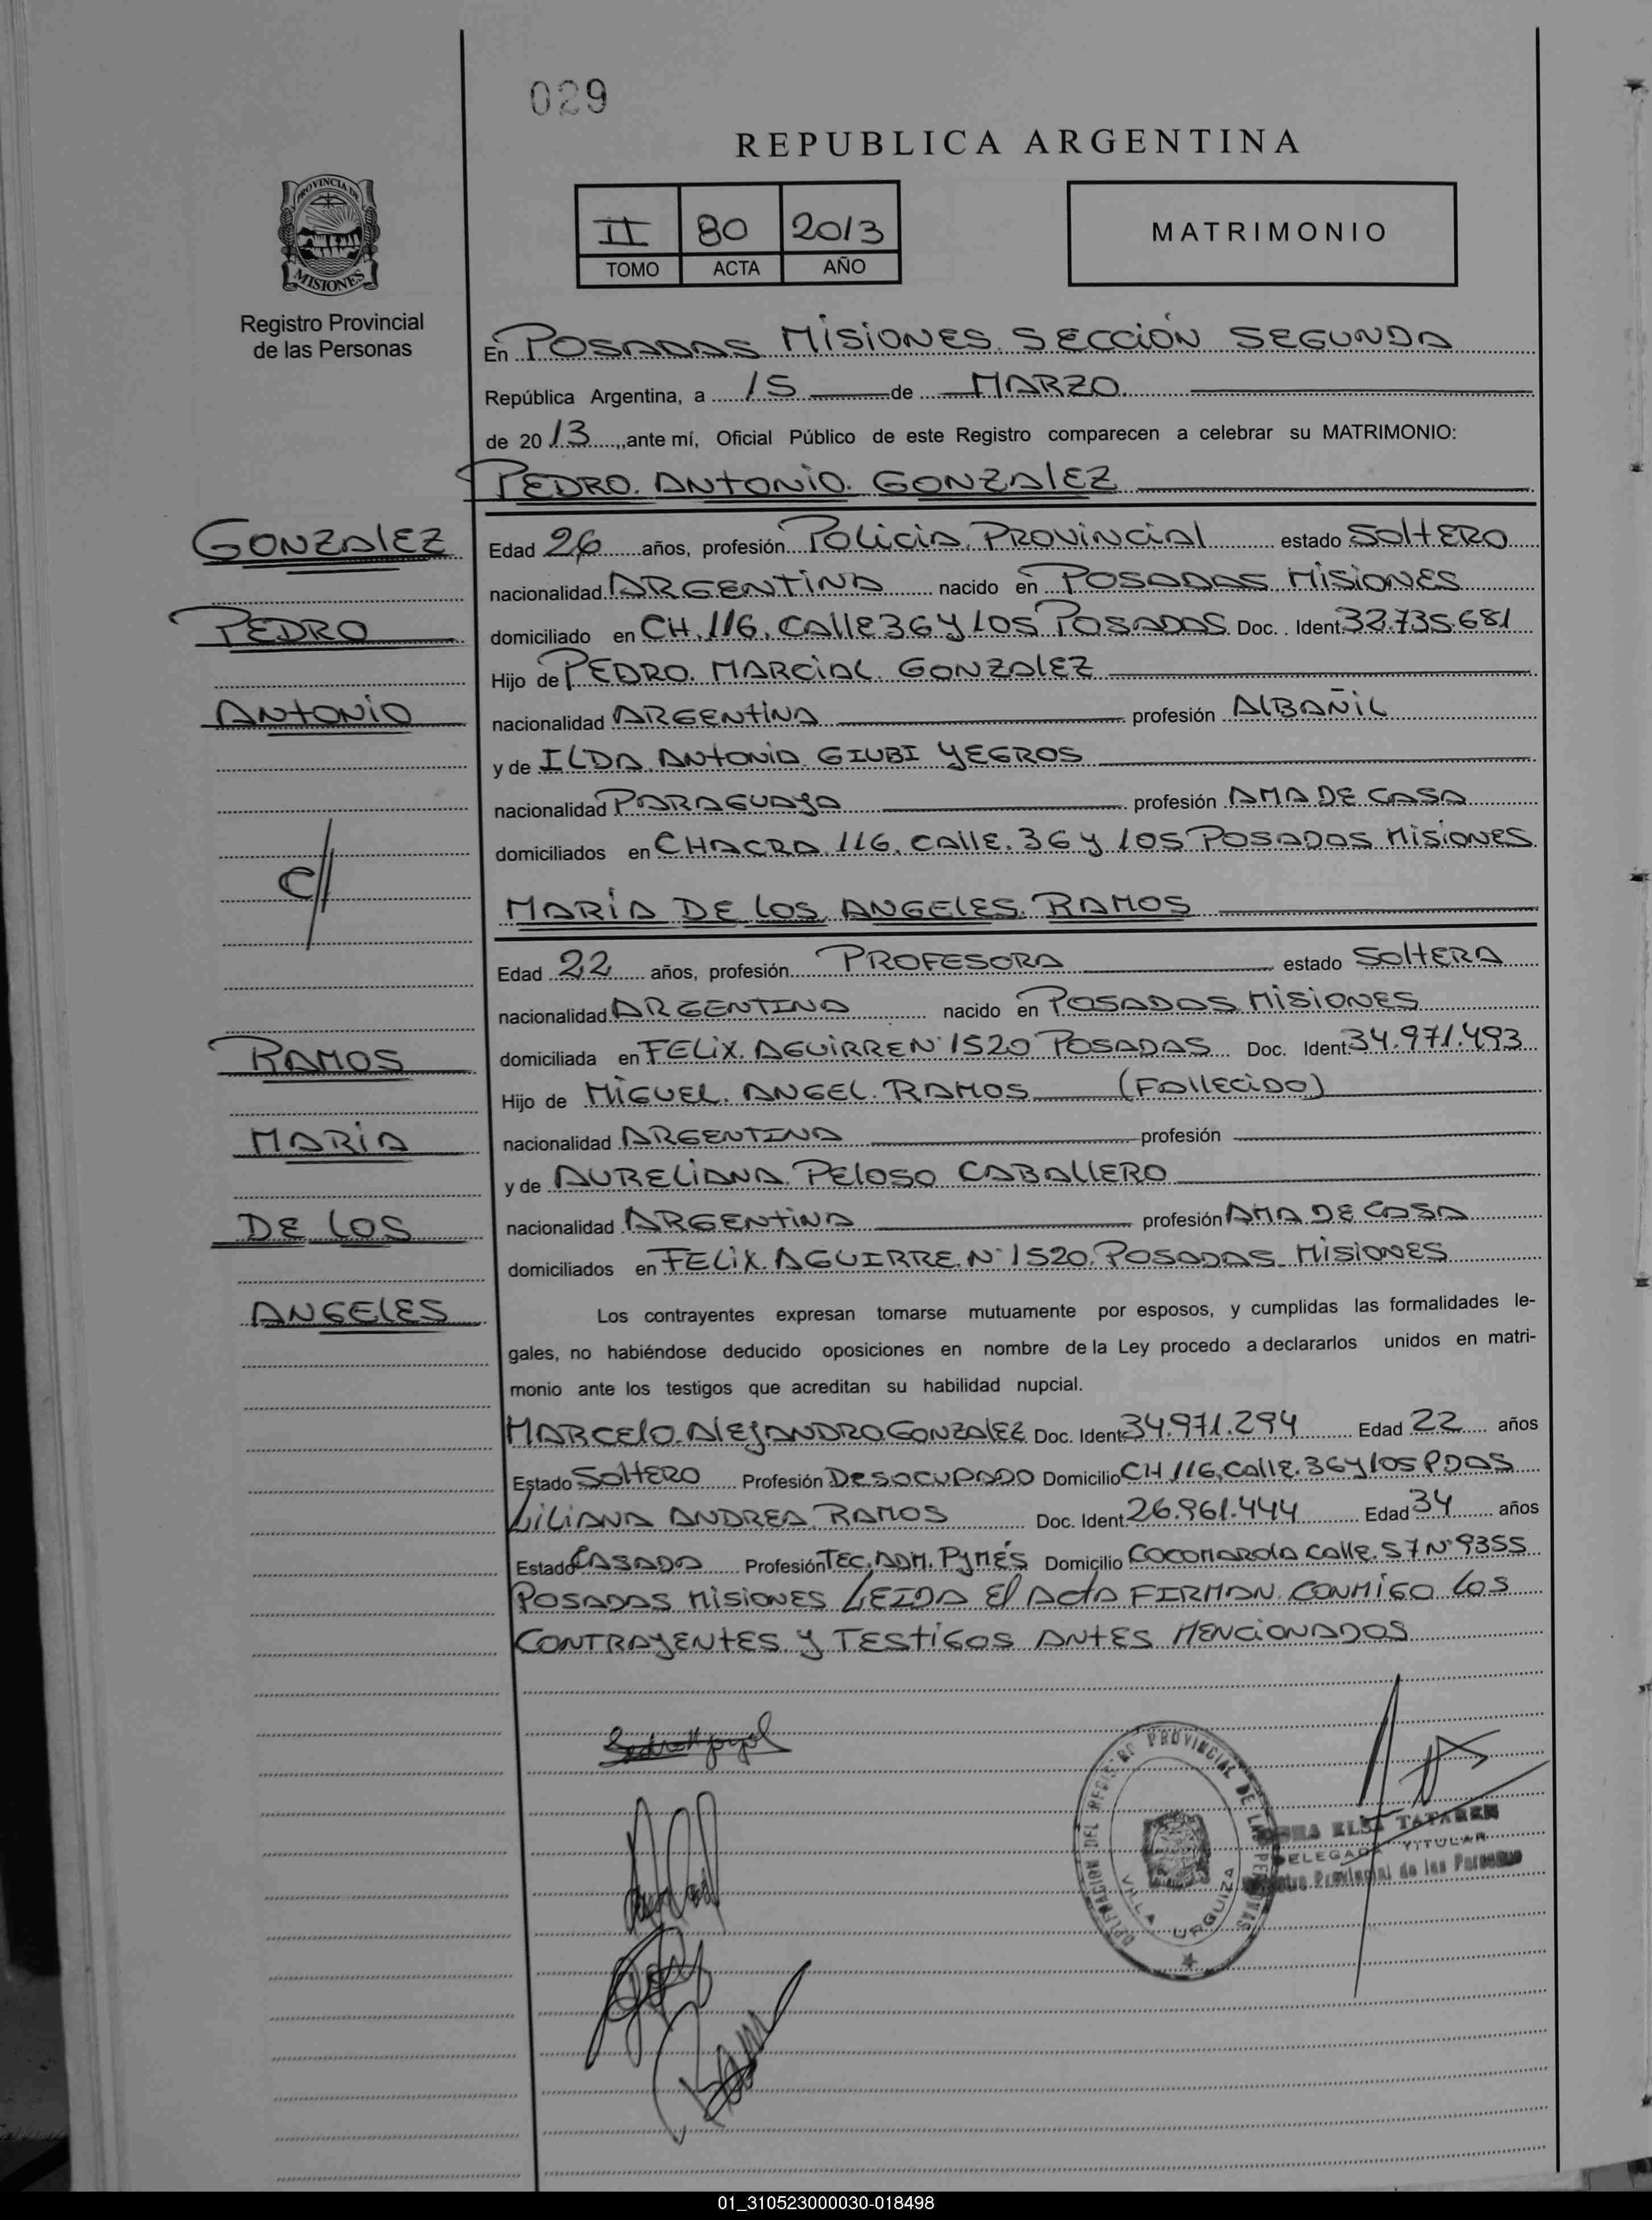 029
REPUBLICA ARGENTINA
II 80 2013
TOMO ACTA AÑO
MATRIMONIO
PROVINCIA DE
MISIONES
Registro Provincial
de las Personas
En POSADAS MISIONES SECCIÓN SEGUNDA
República Argentina, a 15 de MARZO
de 2013, ante mí, Oficial Público de este Registro comparecen a celebrar su MATRIMONIO:
PEDRO ANTONIO GONZALEZ
GONZALEZ
PEDRO
ANTONIO
C//
RAMOS
MARÍA
DE LOS
ANGELES
Edad 26 años, profesión Policia Provincial estado Soltero
nacionalidad ARGENTINA nacido en POSADAS MISIONES
domiciliado en CH. 116. Calle 36 y 105 POSADAS Doc. Ident. 32.735.681
Hijo de PEDRO MARCIAL GONZALEZ
nacionalidad ARGENTINA profesión ALBAÑIL
y de ILDA ANTONIA GIUBI YEGROS
nacionalidad PARAGUAYA profesión AMA DE CASA
domiciliados en CHACRA 116. CALLE. 36 y 105 POSADAS MISIONES
MARÍA DE LOS ANGELES RAMOS
Edad 22 años, profesión PROFESORA estado SOLTERA
nacionalidad ARGENTINA nacido en POSADAS MISIONES
domiciliada en FELIX AGUIRRE N° 1520 POSADAS Doc. Ident. 34.971.493
Hijo de MIGUEL ANGEL RAMOS (FALLECIDO)
nacionalidad ARGENTINA profesión
y de AURELIANA PELOSO CABALLERO
nacionalidad ARGENTINA profesión AMA DE CASA
domiciliados en FELIX AGUIRRE N° 1520 POSADAS MISIONES
Los contrayentes expresan tomarse mutuamente por esposos, y cumplidas las formalidades le-
gales, no habiéndose deducido oposiciones en nombre de la Ley procedo a declararlos unidos en matri-
monio ante los testigos que acreditan su habilidad nupcial.
MARCELO ALEJANDRO GONZALEZ Doc. Ident. 34.971.294 Edad 22 años
Estado SOLTERO Profesión DESOCUPADO Domicilio CH 116. Calle. 36 y 105 PDAS
LILIANA ANDREA RAMOS Doc. Ident. 26.961.444 Edad 34 años
Estado CASADA Profesión TEC. ADM. PYMÉS Domicilio COCOMAROLA Calle. 57 N° 9355
POSADAS MISIONES LEIDA El ACTA FIRMAN CONMIGO LOS
CONTRAYENTES Y TESTIGOS ANTES MENCIONADOS
DELEGACION DEL REGISTRO PROVINCIAL DE LAS PERSONAS
VILLA URQUIZA
ELSA TATAREN
DELEGADA TITULAR
Registro Provincial de las Personas
01_310523000030-018498